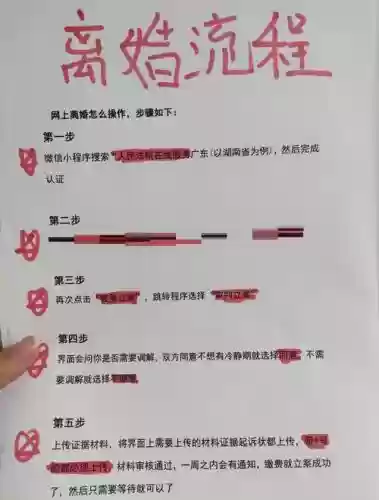 离婚流程
网上离婚怎么操作，步骤如下：
第一步
微信小程序搜索“人民法院在线服务广东(以湖南省为例)，然后完成
认证
第二步
第三步
再次点击“ ”，跳转程序选择“审判立案”
第四步
界面会问你是否需要调解，双方同意不想有冷静期就选择 ，不需
要调解就选择
第五步
上传证据材料，将界面上需要上传的材料证据起诉状都上传，
都必须上传，材料审核通过，一周之内会有通知，缴费就立案成功
了，然后只需要等待就可以了